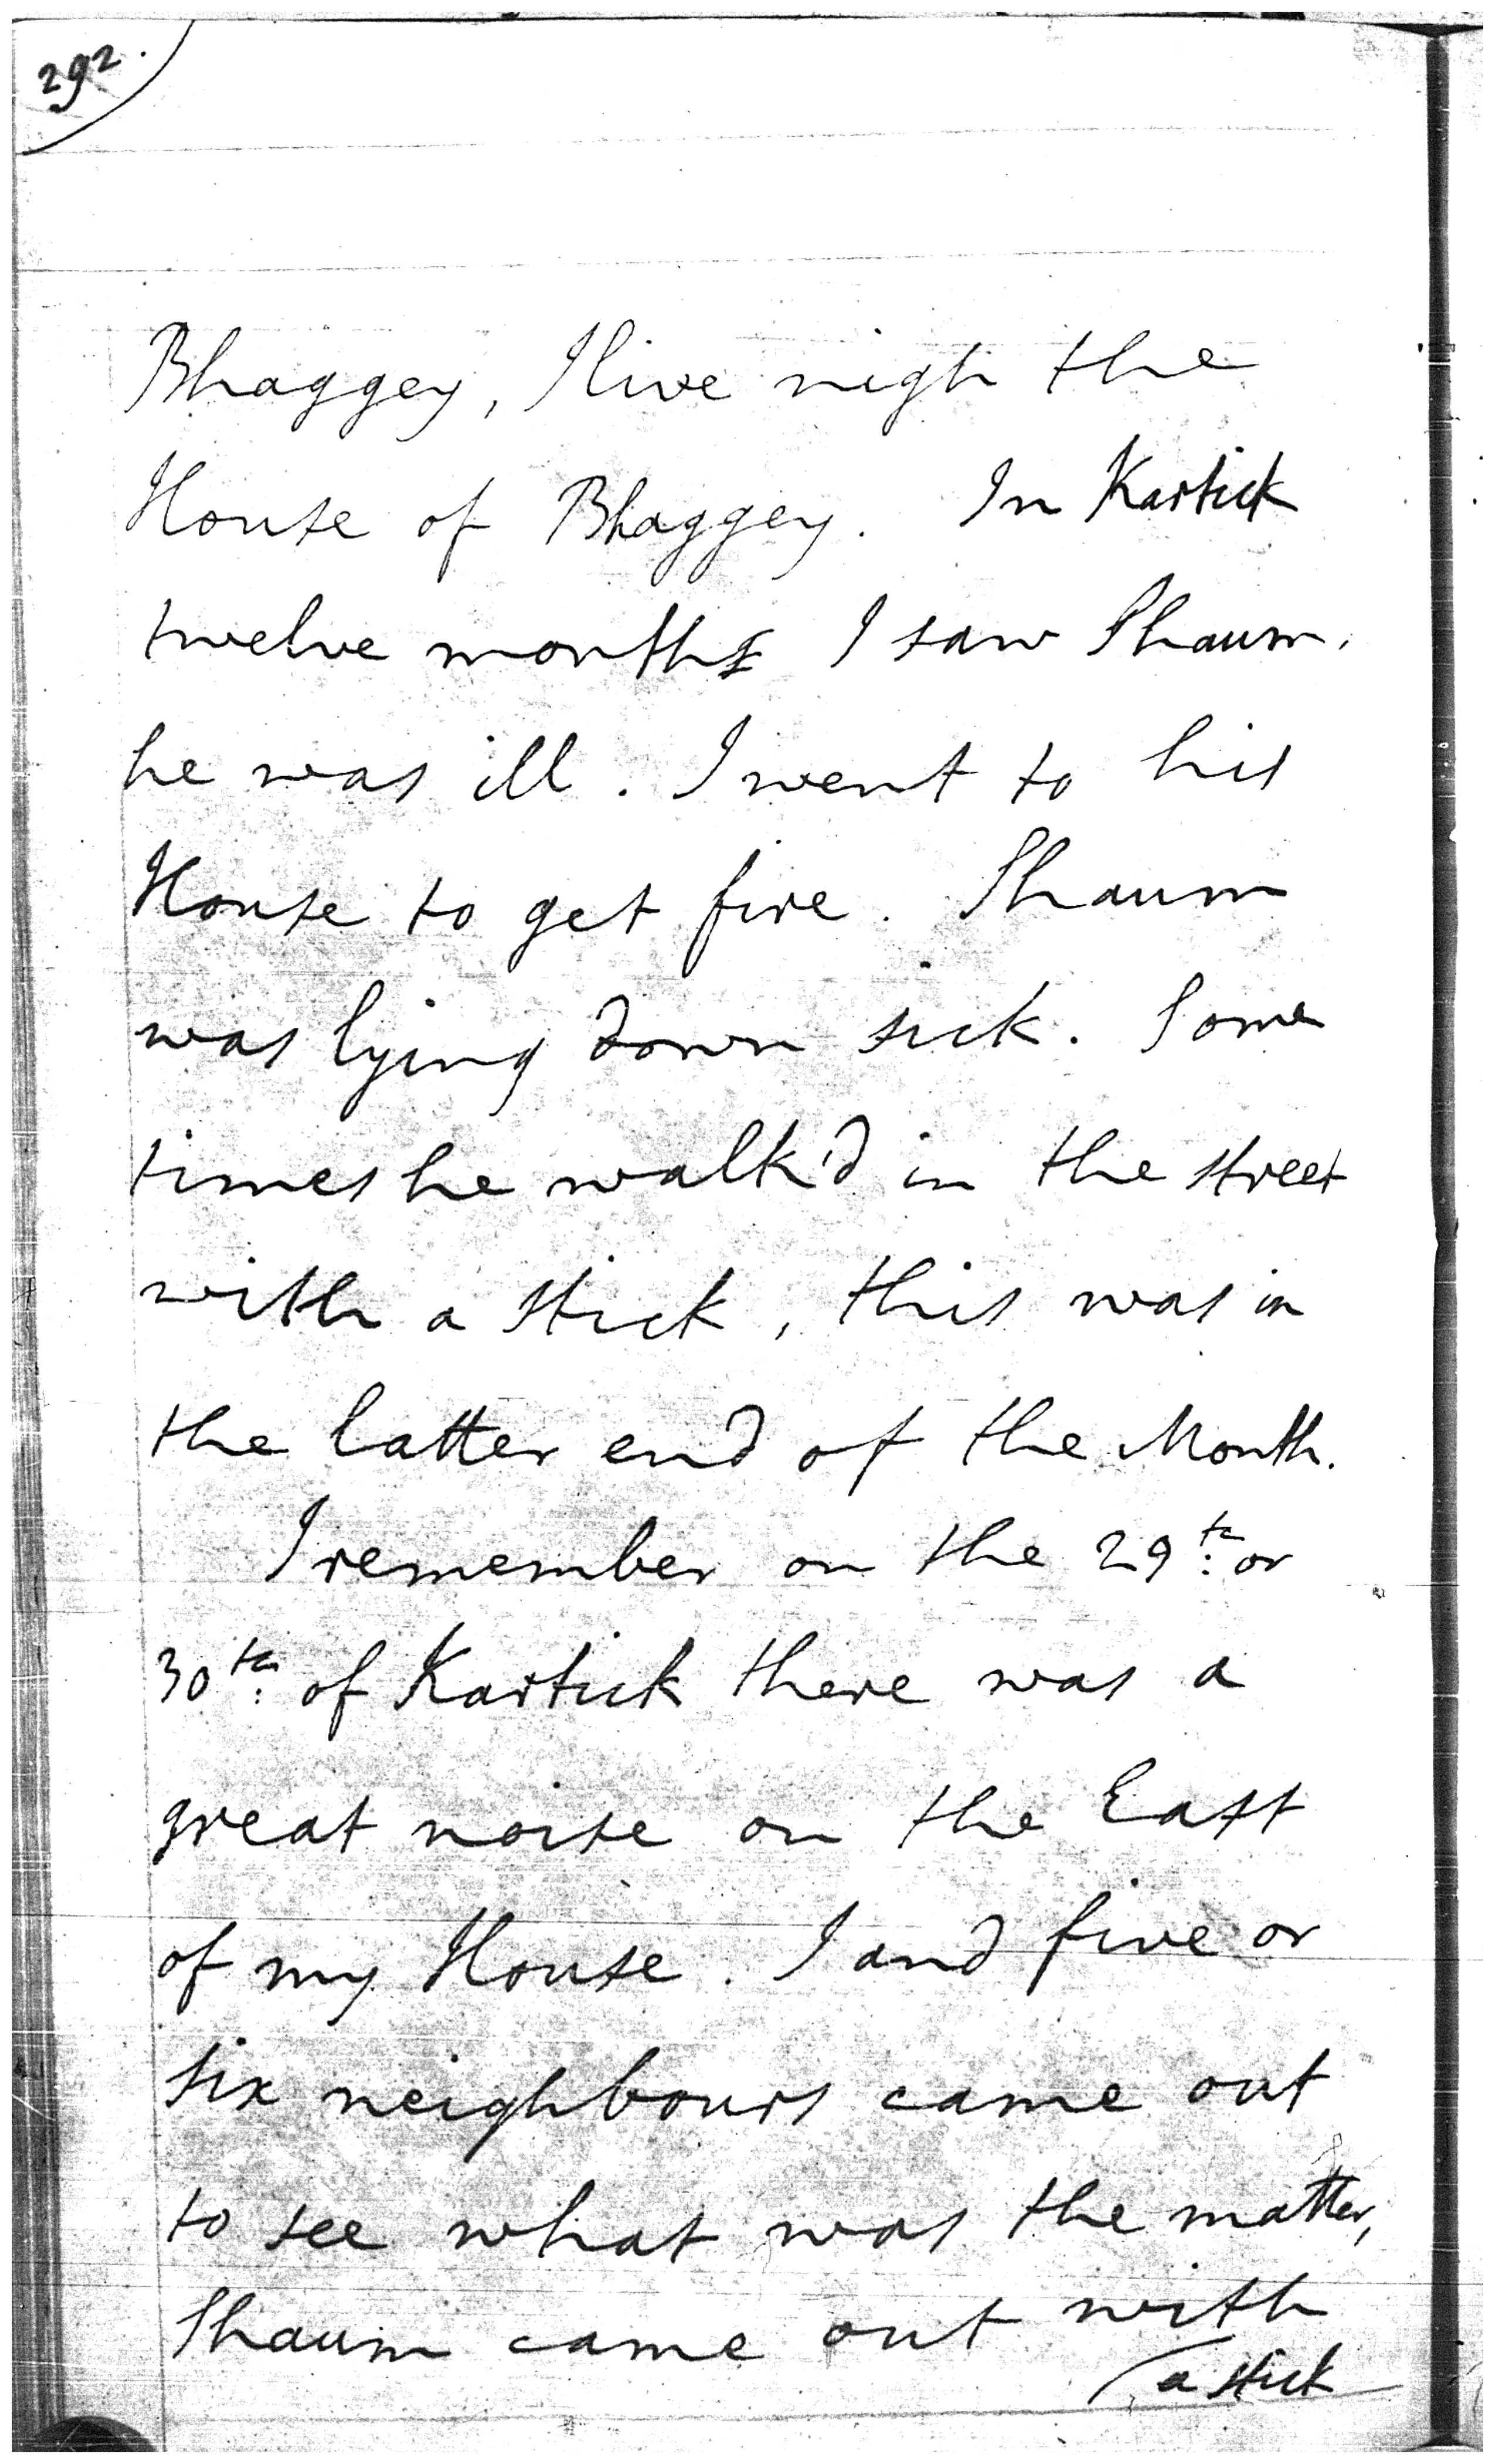 292.
Bhaggey, I live nigh the
House of Bhaggey. In Kartick
twelve months I saw Shaum,
he was ill. I went to his
House to get fire. Shaum
was lying down sick. Some
times he walk'd in the street
with a stick, this was in
the latter end of the Month.
I remember on the 29th: or
30th: of Kartick there was a
great noise on the East
of my House. I and five or
six neighbours came out
to see what was the matter,
Shaum came out with
a stick